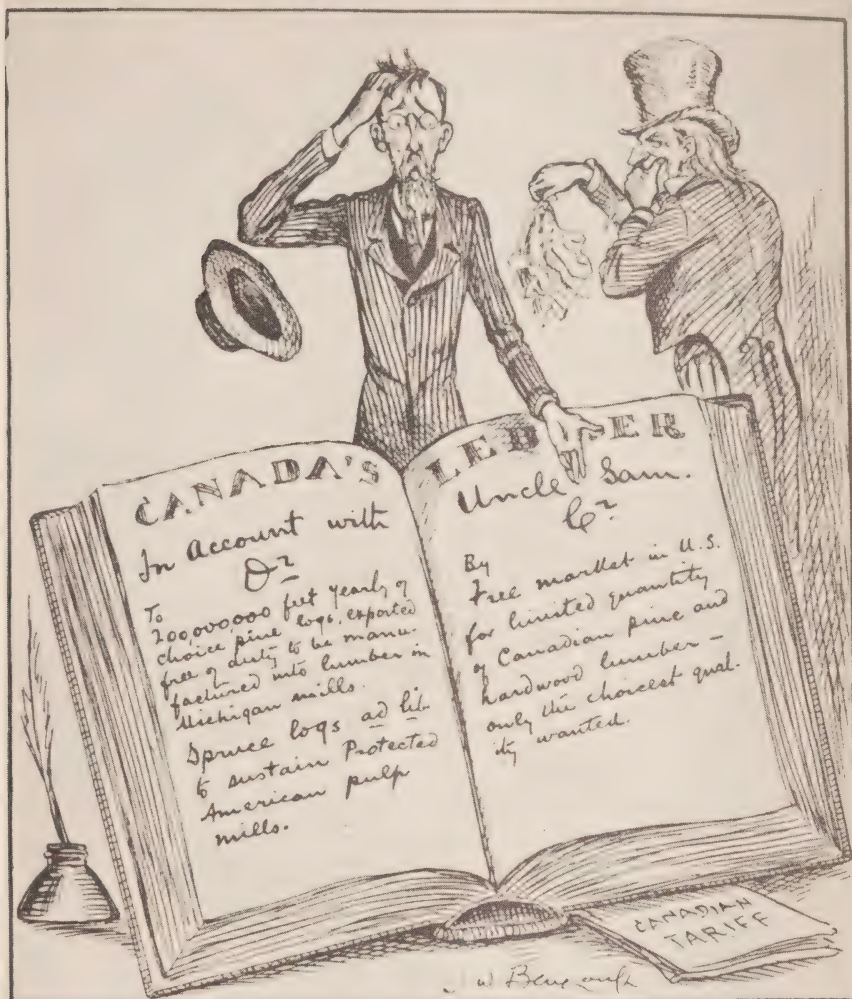 CANADA'S LEDGER
In Account with
Dr
To
200,000,000 feet yearly of
choice pine logs, exported
free of duty to be manu-
factured into lumber in
Michigan mills.
Spruce logs ad lib.
to sustain Protected
American pulp
mills.
Uncle Sam.
Cr
By
Free market in U.S.
for limited quantity
of Canadian pine and
hardwood lumber –
only the choicest qual-
ity wanted.
CANADIAN
TARIFF
J W Bengough